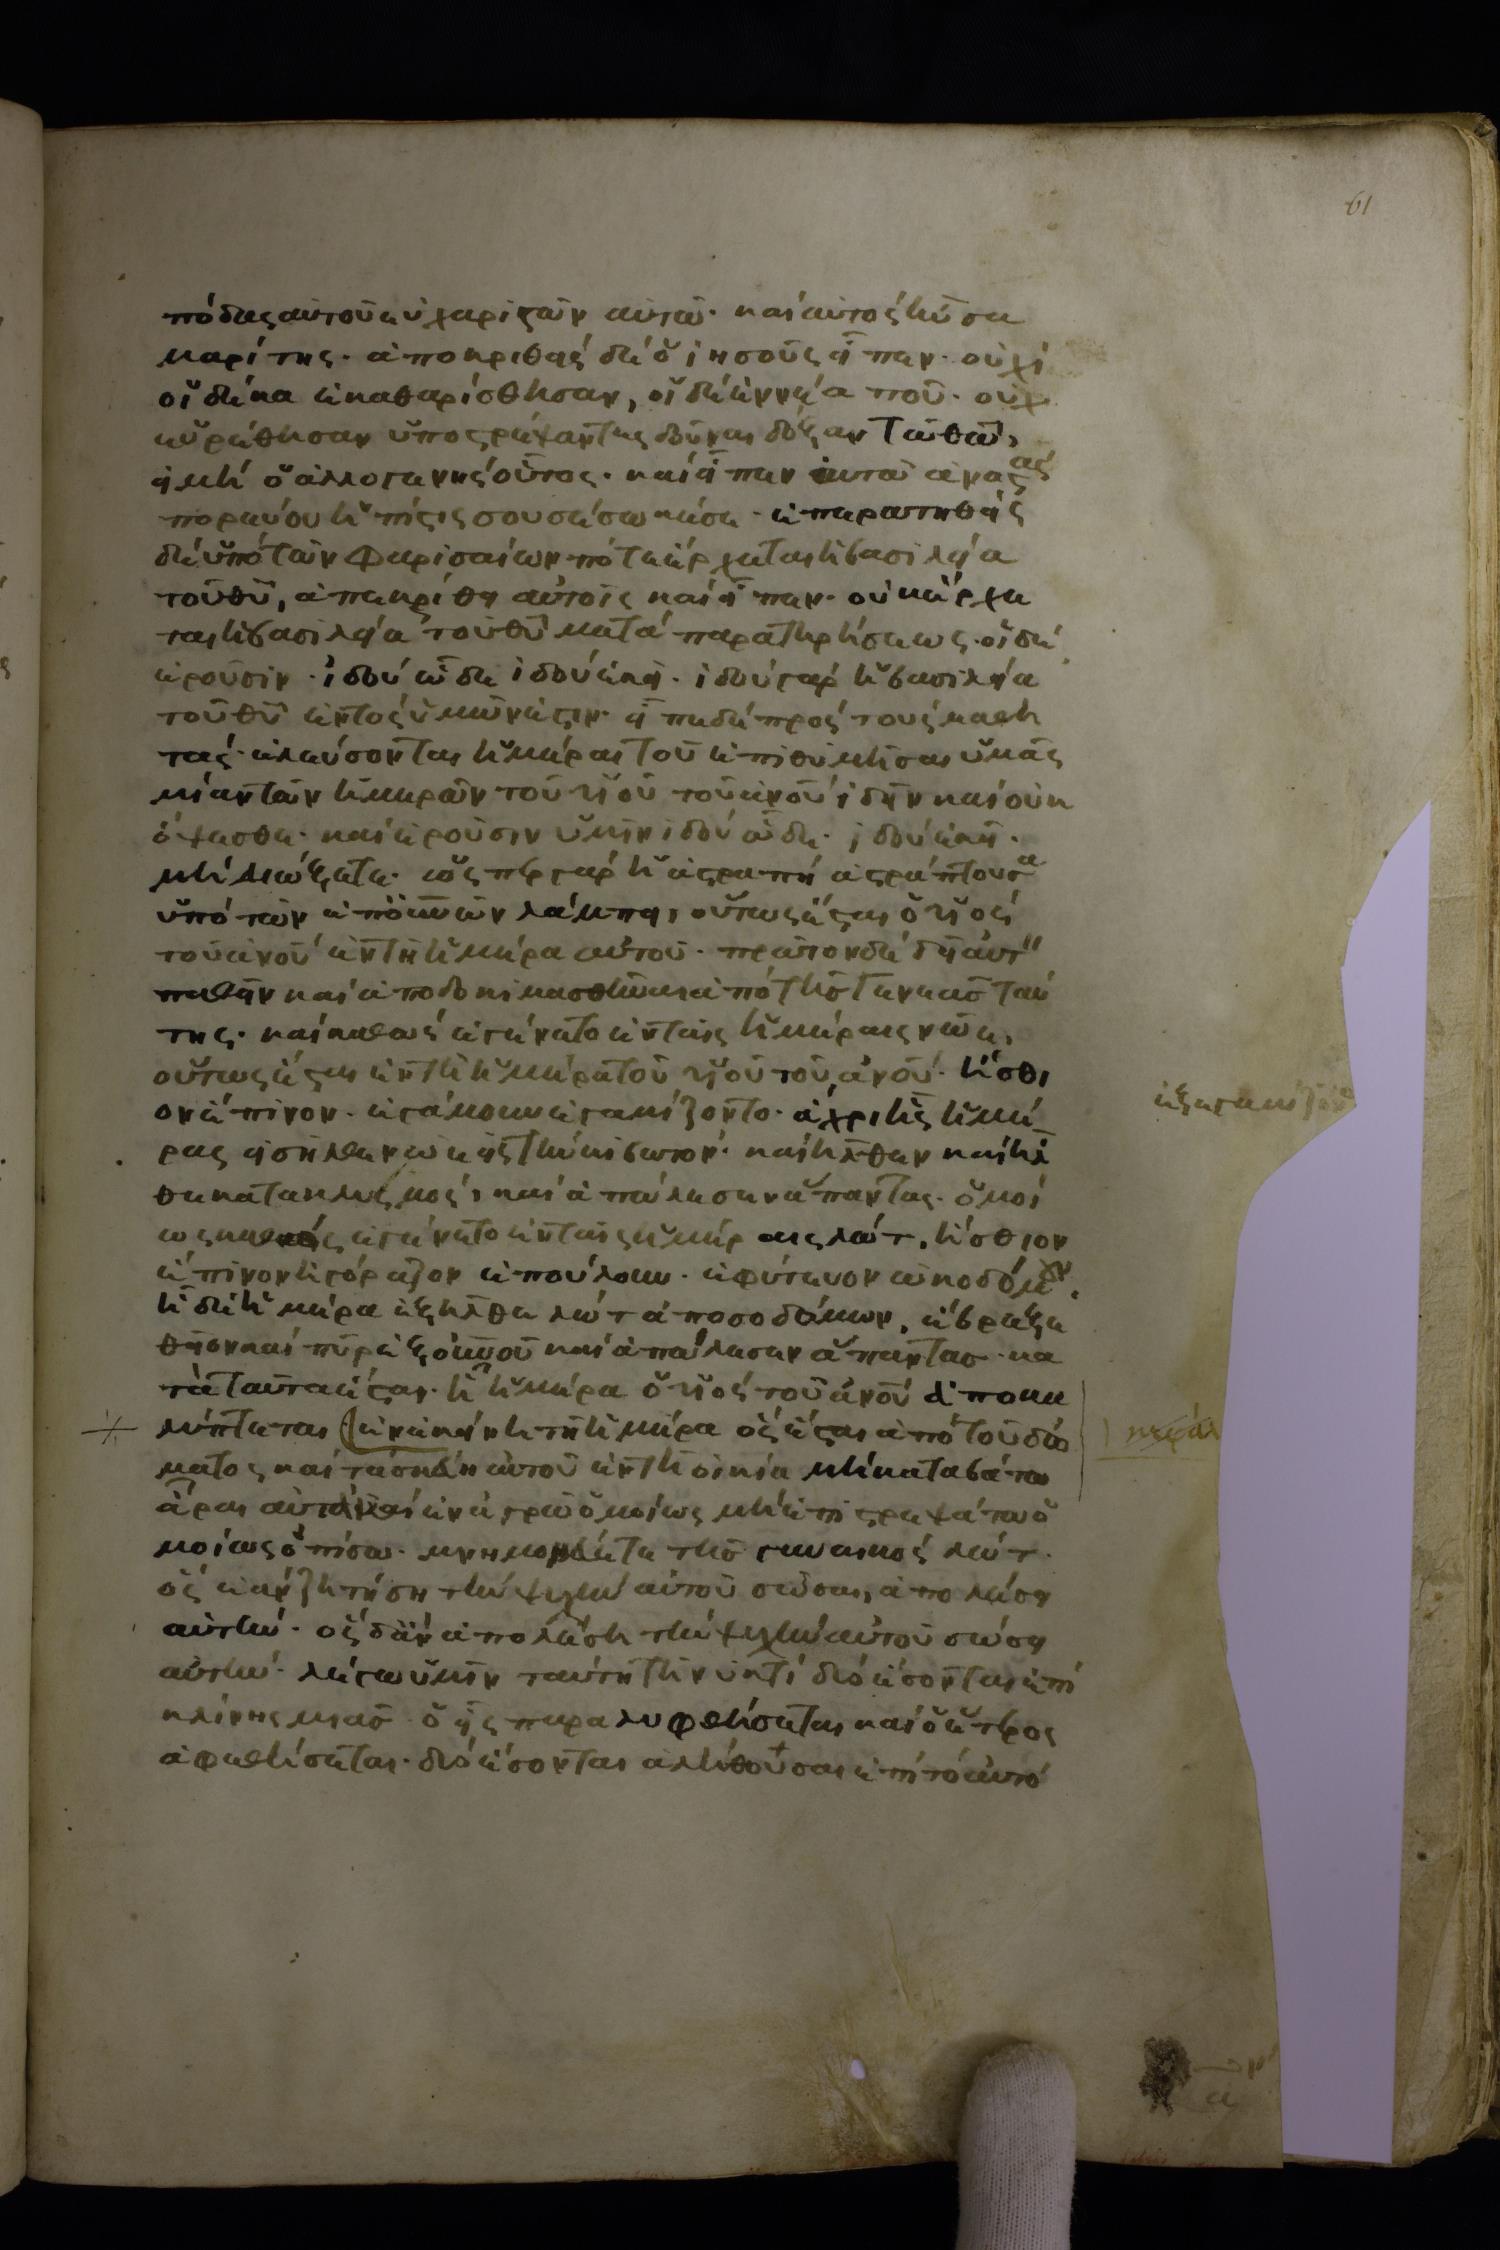 61
πόδας αὐτοῦ εὐχαριστῶν αὐτῶ· καὶ αὐτὸς ἦν σα
μαρίτης· ἀποκριθεὶς δὲ ὁ ἰησοῦς εἶπεν· οὐχὶ
οἱ δέκα ἐκαθαρίσθησαν, οἱ δὲ ἐννέα ποῦ· οὐχ
εὑρέθησαν ὑποστρέψαντες δοῦναι δόξαν τῶ θῶ,
εἰ μὴ ὁ ἀλλογενὴς οὗτος· καὶ εἶπεν αὐτῶ ἀναστὰς
πορεύου ἡ πίστις σου σέσωκέ σε· ἐπερωτηθεὶς
δὲ ὑπὸ τῶν φαρισαίων πότε ἔρχεται ἡ βασιλεία
τοῦ θῦ, ἀπεκρίθη αὐτοῖς καὶ εἶπεν· οὐκ ἔρχε
ται ἡ βασιλεία τοῦ θῦ μετὰ παρατηρήσεως· οἱ δὲ
ἐροῦσιν· ἰδοὺ ὧδε ἰδοὺ ἐκεῖ· ἰδοὺ γὰρ ἡ βασιλεία
τοῦ θῦ ἐντὸς ὑμῶν ἐστιν· εἶπε δὲ πρὸς τοὺς μαθη
τάς· ἐλεύσονται ἡμέραι τοῦ ἐπιθυμῆσαι ὑμᾶς
μίαν τῶν ἡμερῶν τοῦ υἱοῦ τοῦ ἀνοῦ ἰδεῖν καὶ οὐκ
ὄψεσθε· καὶ ἐροῦσιν ὑμῖν ἰδοὺ ὧδε· ἰδοὺ ἐκεῖ·
μὴ διώξετε· ὥσπερ γὰρ ἡ ἀστραπὴ ἀστράπτουσα
ὑπὸ τῶν ἐπ οὐνῶν λάμπει, οὕτως ἔσται ὁ υἱὸς
τοῦ ἀνοῦ ἐν τῆ ἡμέρα αὐτοῦ· πρῶτον δὲ δεῖ αὐτ
παθεῖν καὶ ἀποδοκιμασθῆναι ἀπὸ τῆς γενεᾶς ταύ
της· καὶ καθὼς ἐγένετο ἐν ταῖς ἡμέραις νῶε,
οὕτως ἔσται ἐν τῆ ἡμέρα τοῦ υἱοῦ τοῦ ἀνοῦ· ἤσθι
ον ἔπινον· ἐγάμουν ἐγαμίζοντο· ἄχρι ἧς ἡμέ
ρας εἰσῆλθεν νῶε εἰς τὴν κιβωτόν· καὶ ἦλθεν καὶ ἦλ
θε κατακλυσμός, καὶ ἀπώλεσεν ἅπαντας· ὁμοί
ως καθὼς ἐγένετο ἐν ταῖς ἡμέραις λώτ, ἤσθιον
ἔπινον ἠγόραζον ἐπούλουν· ἐφύτευον ὠκοδόμουν.
ἧ δὲ ἡμέρα ἐξῆλθε λὼτ ἀπὸ σοδόμων, ἔβρεξε
θεῖον καὶ πῦρ ἐξ οὐνοῦ καὶ ἀπώλεσεν ἅπαντας· κα
τὰ ταῦτα ἔσται· ἧ ἡμέρα ὁ υἱὸς τοῦ ἀνοῦ ἀποκα
λύπτεται ἐν ἐκείνη τῆ ἡμέρα ὃς ἔσται ἀπὸ τοῦ δώ
ματος καὶ τὰ σκεύη αὐτοῦ ἐν τῆ οἰκία μὴ καταβάτω
ἆραι αὐτὰ καὶ ἐν ἀγρῶ ὁμοίως μὴ ἐπιστρεψάτω ὁ
μοίως ὀπίσω· μνημονεύετε τῆς γυναικὸς λώτ·
ὃς ἐὰν ζητήση τὴν ψυχὴν αὐτοῦ σῶσαι, ἀπολέσει
αὐτήν· ὃς δ' ἂν ἀπολέση τὴν ψυχὴν αὐτοῦ σώσει
αὐτήν· λέγω ὑμῖν ταύτη τῆ νυκτὶ δύο ἔσονται ἐπὶ
κλίνης μιᾶς· ὁ εἷς παραλυφθήσεται καὶ ὁ ἕτερος
ἀφεθήσεται· δύο ἔσονται ἀλήθουσαι ἐπὶ τὸ αὐτό
ἐξεγαμίζον